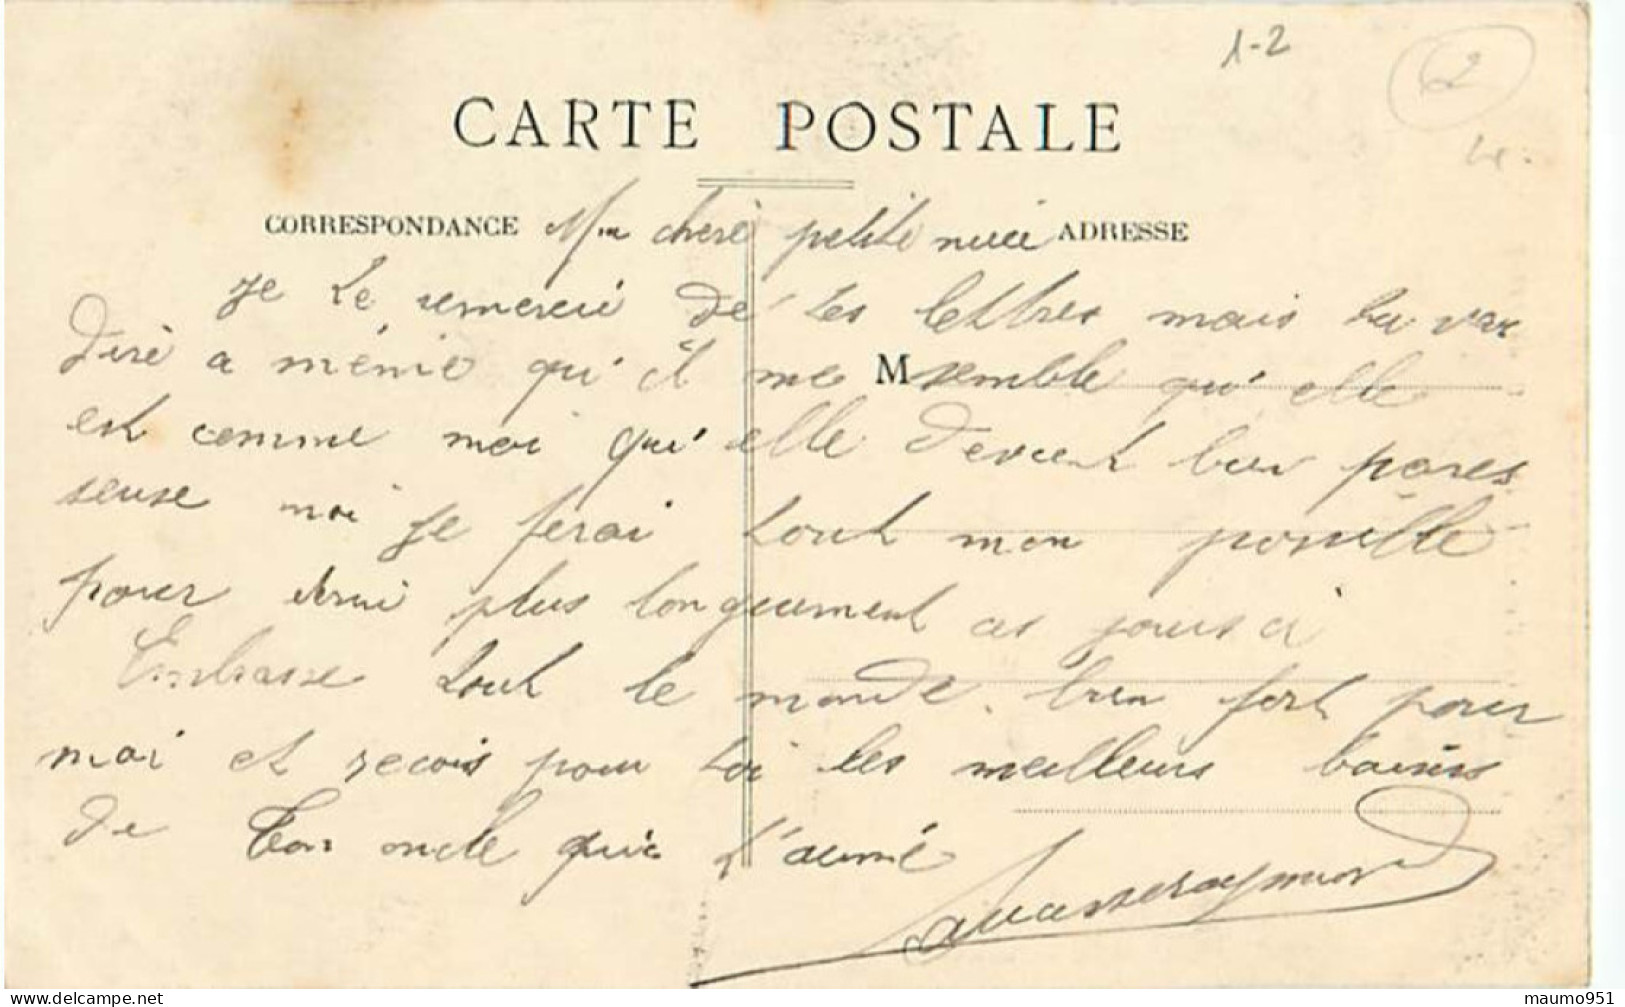 1-2
2
CARTE POSTALE
CORRESPONDANCE Mon cheré petite niéce ADRESSE
Je te remercié de tes lettres mais tu vas
diré a ménie qu'il me M semble qu'elle
est comme moi qu'elle devient bien pares
seuse moi je ferai tout mon possible
pour plus longuement ces jours ci
Embrasse tout le monde. bien fort pour
moi et recois pour toi les meilleurs baisers
de ton oncle qui t'aimé
maumo951